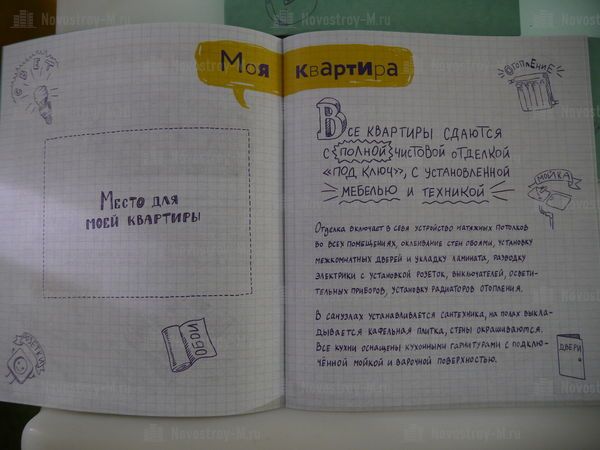 Novostroy-M.ru
Novostroy-M.ru
Novostroy-M.ru
Моя квартира
Место для
моей квартиры
ОБОИ
РОЗЕТКИ
ОТОПЛЕНИЕ
Все квартиры сдаются
с полной чистовой отделкой
«под ключ», с установленной
мебелью и техникой
МОЙКА
Отделка включает в себя устройство натяжных потолков
во всех помещениях, оклеивание стен обоями, установку
межкомнатных дверей и укладку ламината, разводку
электрики с установкой розеток, выключателей, освети-
тельных приборов, установку радиаторов отопления.
В санузлах устанавливается сантехника, на полах выкла-
дывается кафельная плитка, стены окрашиваются.
Все кухни оснащены кухонными гарнитурами с подклю-
чённой мойкой и варочной поверхностью.
ДВЕРИ
Novostroy-M.ru
Novostroy-M.ru
Novostroy-M.ru